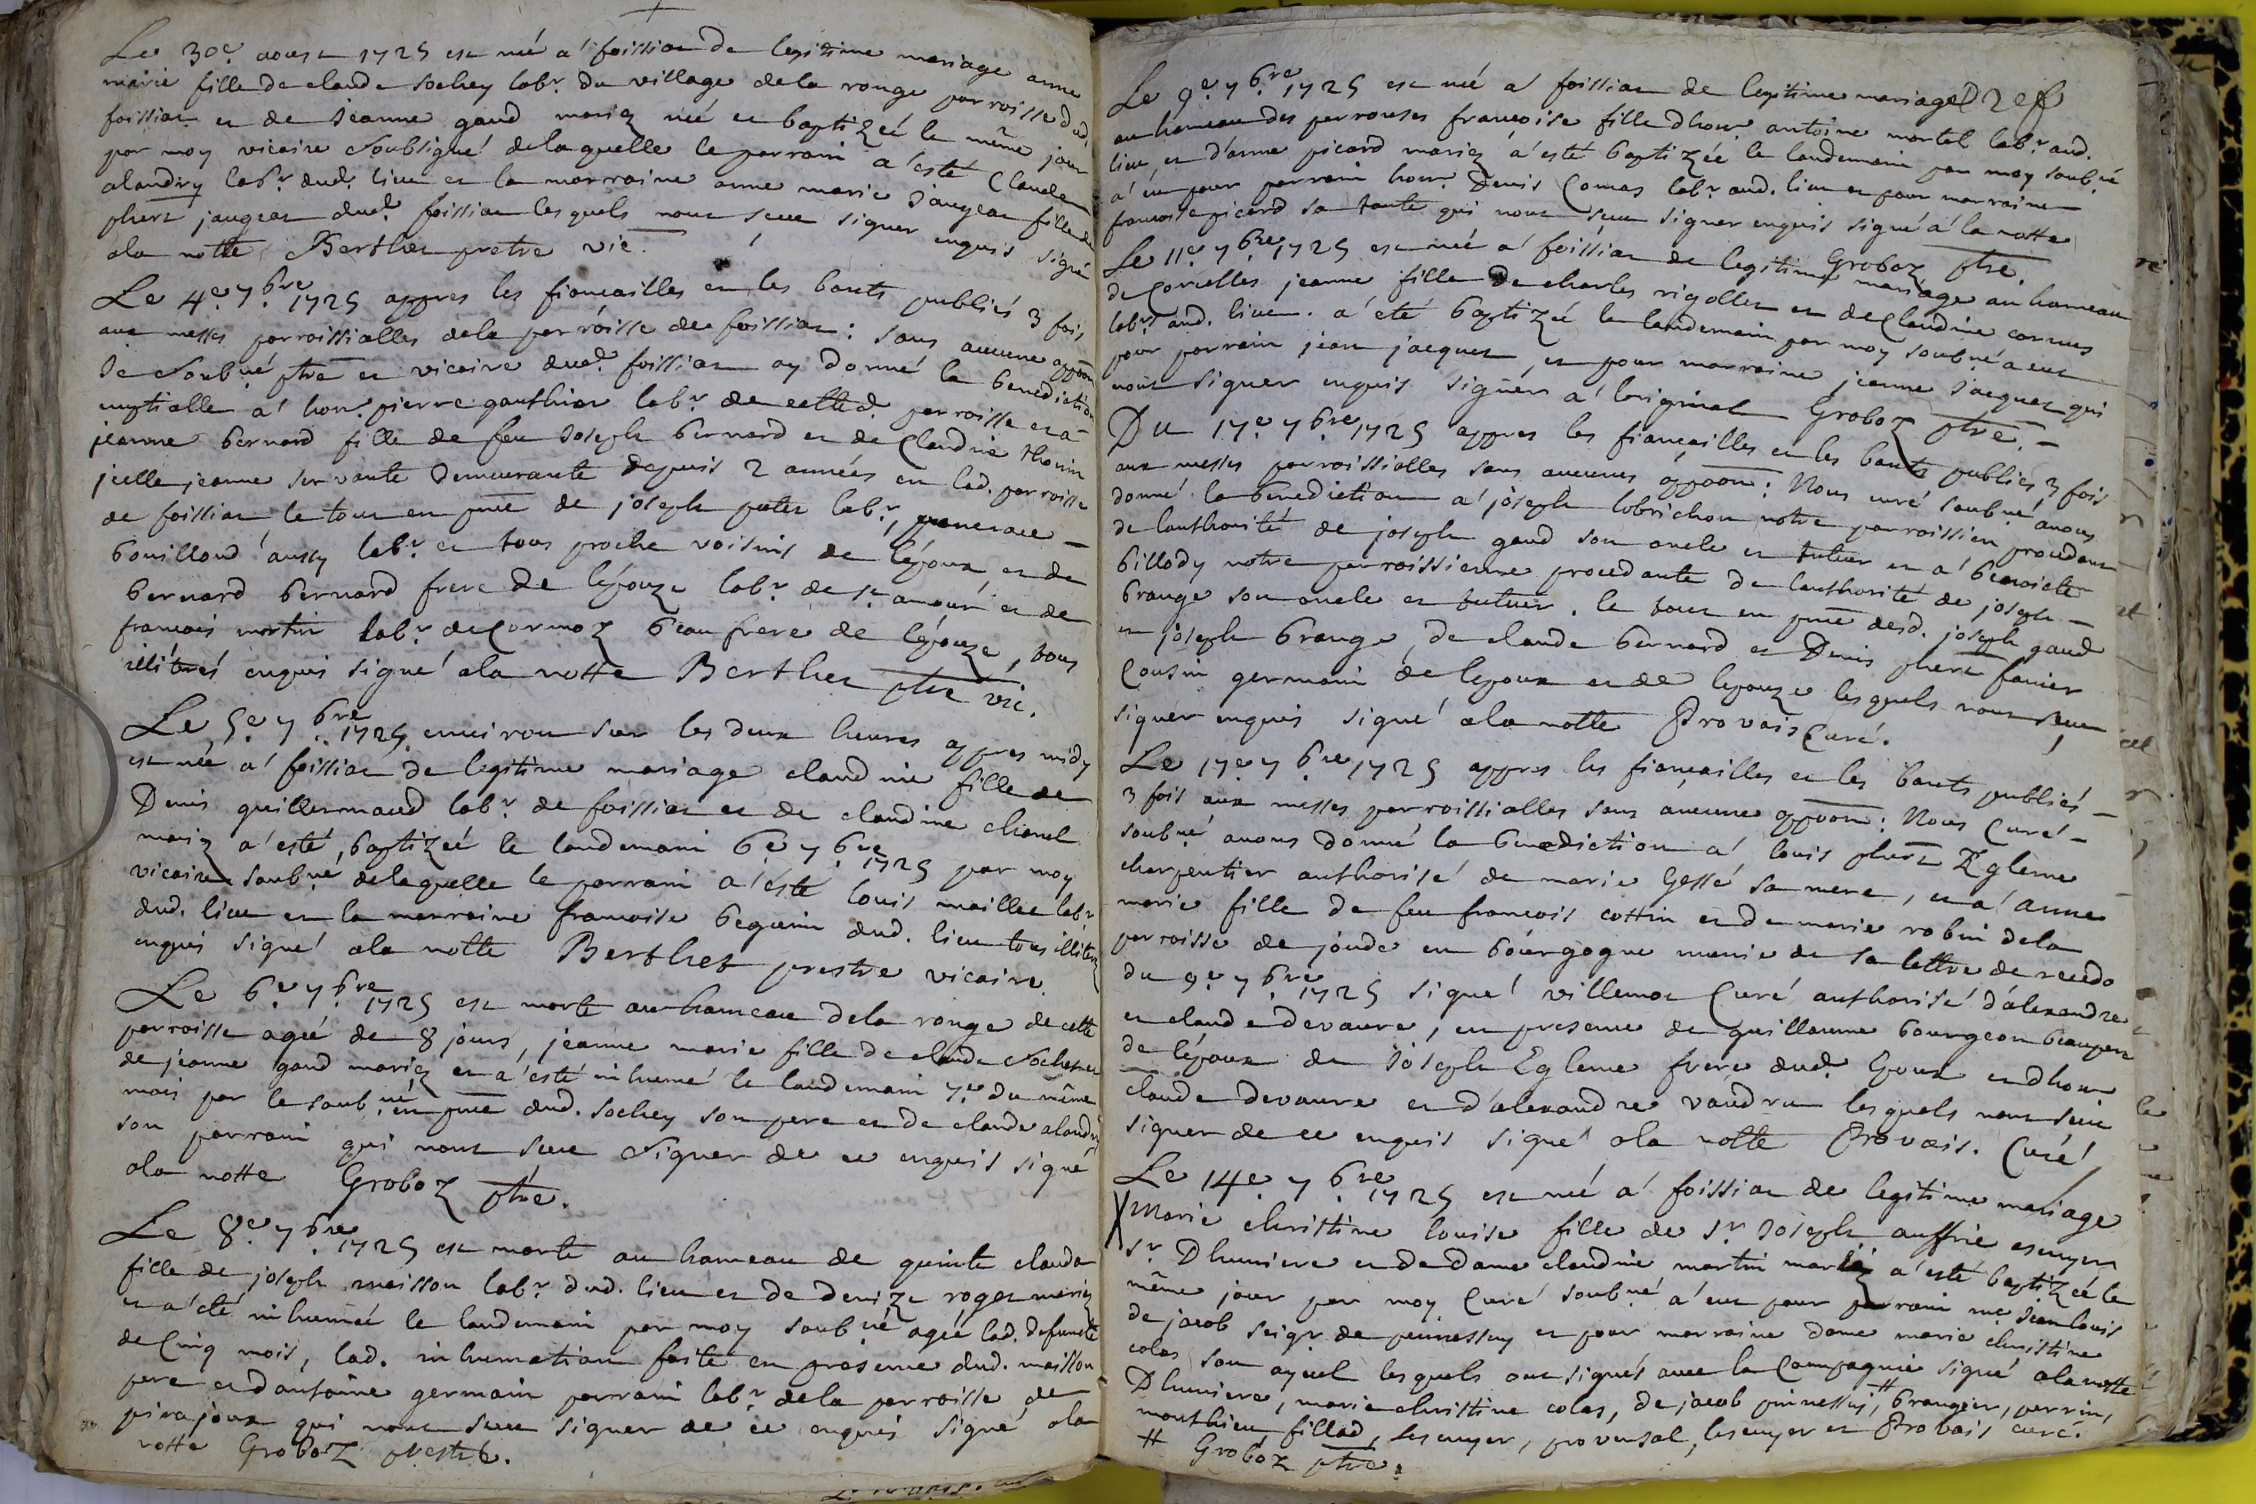 Le 30e. aoust 1725 est néé a foissiat de legitime mariage anne
marie fille de claude sochey labr. du village de la ronge parroisse dud.
foissiat et de jeanne gaud mariez néé et baptizeé le même jour
par moy vicaire soubsigné de laquelle le parrain a esté Claude
alandry labr. dud. lieu et la marraine anne marie jaugeat fille de
phert jaugeat dud. foissiat lesquels n'ont sceu signer enquis signé
a la notte Berthet prêtre vic.
Le 4e. 7bre. 1725 appres les fiançailles et les bants publiés 3 fois
aux messes parroissialles de la parroisse de foissiat: sans aucune oppoon
Je soubné. ptre et vicaire dud. foissiat ay donné la benediction
nuptialle a honr. pierre gauthier labr. de cetted. parroisse et a
jeanne bernard fille de feu joseph bernard et de Claudine thorin
jcelle jeanne servante demeurante depuis 2 années en lad. parroisse
de foissiat le tout en pnce de joseph putet labr.,
bouilloud aussy labr. et tous proche voisins de l'époux, et de
bernard bernard frere de l'épouze labr. de st. amour et de
françois martin labr. de Cormoz beau frere de l'épouze, tous
illitérés enquis signé a la notte Berthet ptre vic.
Le 5e. 7bre. 1725 environ sur les deux heures appres midy
est néé a foissiat de legitime mariage claudine fille de
Denis guillermaud labr. de foissiat et de claudine chanel
mariez a esté baptizeé le landemain 6e. 7bre. 1725 par moy
vicaire soubné. de laquelle le parrain a esté louis maillet labr.
dud. lieu et la marraine françoise beguin dud. lieu tous illiterez
enquis signé a la notte Berthet prestre vicaire.
Le 6e. 7bre. 1725 est morte au hameau de la ronge de cette
parroisse ageé de 8 jours, jeanne marie fille de claude sochey et
de jeanne gaud mariez et a esté inhumé le landemain 7e. du même
mois par le soubné. en pnce dud. sochey son pere et de claude alandry
son parrain qui n'ont sceu signer de ce enquis signé
a la notte Groboz ptre.
Le 8e. 7bre. 1725 est morte au hameau de quinte clauda
fille de joseph maisson labr. dud. lieu et de denize roget mariez
et a été inhumeé le landemain par moy soubné ageé lad. defuncte
de Cinq mois, lad. inhumation faite en présence dud. maisson
pere et d'antoine germain parrain labr. de la parroisse de
pirajoux qui n'ont sceu signer de ce enquis signé a la
notte Groboz prestre.
Le 9e. 7bre. 1725 est né a foissiat de legitime mariage
au hameau des perrouses françoise fille d'honr. antoine mortel labr. aud.
lieu et d'anne picard mariez a esté baptizée le landemain par moy soubné.
a eu pour parrain honr. Denis Comas labr. aud. lieu et pour marraine
françoise picard sa tante qui n'ont sceu signer enquis signé a la notte
Groboz ptre.
Le 11e. 7bre. 1725 est néé a foissiat de legitime mariage au hameau
de Corcelles jeanne fille de charles rigollet et de Claudine cornus
labr. aud. lieu. a été baptizeé le landemain par moy soubné. a eut
pour parrain jean jacquet, et pour marraine jeanne jacquet qui
n'ont signer enquis signér a l'original Groboz ptre.
Du 17e. 7bre. 1725 appres les fiançailles et les bants publiés 3 fois
aux messes parroissialles sans aucunes oppoon: Nous curé soubné. avons
donné la benediction a joseph lobrichon notre parroissien procedant
de l'authorité de joseph gaud son oncle et tuteur et a benoicte
billody notre parroissienne procedante de l'authorité de joseph
brange son oncle et tuteur. le tout en pnce desd. joseph gaud
et joseph brange, de claude bernard et Denis phert favier
Cousin germain de lepoux et de lepouze lesquels n'ont sceu
signer enquis signé a la notte Provais Curé.
Le 17e. 7bre 1725 appres les fiançailles et les bants publiés
3 fois aux messes parroissialles sans aucune oppoon: Nous Curé
soubné avons donné la benediction a louis phert Egleme
charpentier authorisé de marie Gessé sa mere, et a anne
marie fille de feu françois cottin et de marie robin de la
parroisse de joude en bourgogne munie de sa lettre de recedo
du 9e. 7bre. 1725 signé villemot Curé authorisé d'alexandre
et claude devaure, en presence de guillaume bourgeon beaupere
de l'époux de joseph Egleme frere dud. Epoux et d'honr
claude devaure et d'alexandre vaudru lesquels n'ont sceu
signer de ce enquis signé a la notte Provais. Curé
Le 14e. 7bre. 1725 est néé a foissiat de legitime mariage
Marie christine louise fille de sr. joseph auffrie escuyer
sr. Dhumiere et de dame claudine martin mariéz a esté baptizeé le
même jour par moy Curé soubné a eut pour parrain me jean louis
de jacob seigr. de pennessuy et pour marraine dame marie christine
colas son ayeul lesquels ont signés avec la Compagnie signé a la notte
Dhumiere, marie christine colas, de jacob pinnessuy, # brangier, perrin,
monthieu, fillod, lescuyer, provensal, lescuyer et Provais curé.
# Groboz ptre.